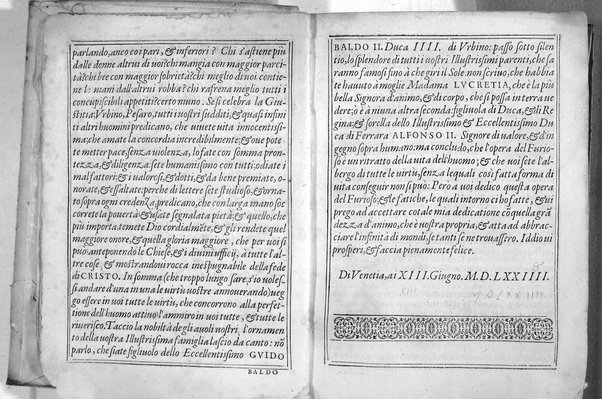 parlando, anco co i pari, & inferiori? Chi s'astiene più
dalle donne altrui di voi? chi mangia con maggior parci-
tà? chi bee con maggior sobrietà? chi meglio di voi contie-
ne le mani dall'altrui robba? chi rafrena meglio tutti i
concupiscibili appetiti? certo niuno. Se si celebra la Giu-
stitia; Vrbino, Pesaro, tutti i vostri sudditi, & quasi infini
ti altri huomini predicano, che viuete vita innocentissi-
ma; che amate la concordia incredibilmente; & oue pote
te metter pace, senza violenza, lo fate con somma pron-
tezza, & diligenza. sete humanissimo con tutti: odiate i
malfattori; & i valorosi, & dotti, & da bene premiate, o-
norate, & essaltate: perche di lettere sete studioso, & orna-
to sopra ogni credenza. predicano, che con larga mano soc
correte la pouertà & usate segnalata pietà: & quello, che
più importa, temete Dio cordialmẽte, & gli rendete quel
maggiore onore, & quella gloria maggiore, che per voi si
può; anteponendo le Chiese, & i diuini ufficij, à tutte l'al-
tre cose, & mostrandoui rocca inespugnabile della fede
di CRISTO. In somma (che troppo lungo sare, s'io voles-
si andare d'una in una le virtù vostre annouerando) ueg-
go essere in voi tutte le virtù, che concorrono alla perfet-
tione dell'huomo attiuo; l'ammiro in voi tutte, & tutte le
riuerisco. Taccio la nobiltà de gli auoli vostri, l'ornamen
to della vostra Illustrissima famiglia lascio da canto: nõ
parlo, che siate figliuolo dello Eccellentissimo GVIDO
BALDO
BALDO II. Duca IIII. di Vrbino: passo sotto silen
tio, lo splendore di tutti i vostri Illustrissimi parenti, che sa
ranno famosi fino à che giri il Sole. non scriuo, che habbia
te hauuto à moglie Madama LVCRETIA, che è la più
bella Signora d'animo, & di corpo, che si possa in terra ve
dere; ò è à niuna altra seconda: figliuola di Duca, & di Re
gina; & sorella dello Illustrissimo & Eccellentissimo Du
ca di Ferrara ALFONSO II. Signore di valore, & d'in
gegno sopra humano: ma concludo, che l'opera del Furio-
so è un ritratto della vita dell'huomo; & che voi sete l'al-
bergo di tutte le virtù, senza le quali così fatta forma di
vita conseguir non si può: Pero a voi dedico questa opera
del Furioso; & le fatiche, le quali intorno ci ho fatte, & vi
prego ad accettare cotale mia dedicatione cõ quella grã
dezza d'animo, che è vostra propria; & atta ad abbrac-
ciare l'infinità di mondi, se tanti se ne trouassero. Iddio vi
prosperi, & faccia pienamente felice.
Di Venetia, ai XIII. Giugno. M.D.LXXIIII.